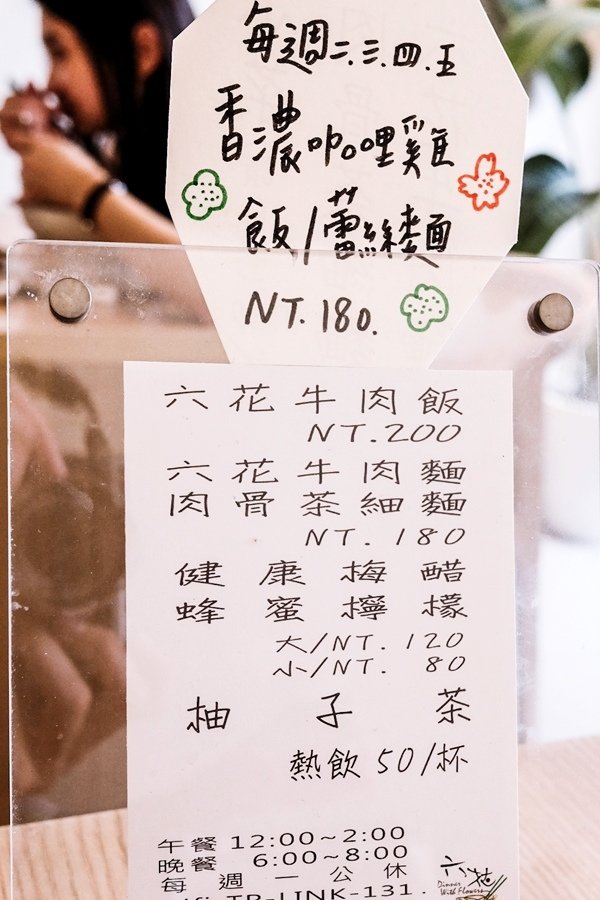 每週二.三.四.五
香濃咖哩雞
飯/蕾絲麵
NT.180.
六花牛肉飯
NT.200
六花牛肉麵
肉骨茶細麵
NT.180
健康梅醋
蜂蜜檸檬
大/NT.120
小/NT. 80
柚子茶
熱飲 50/杯
午餐 12:00~2:00
晚餐 6:00~8:00
每週一公休
TP-LINK-131.
六花
Dinner
With Flowers